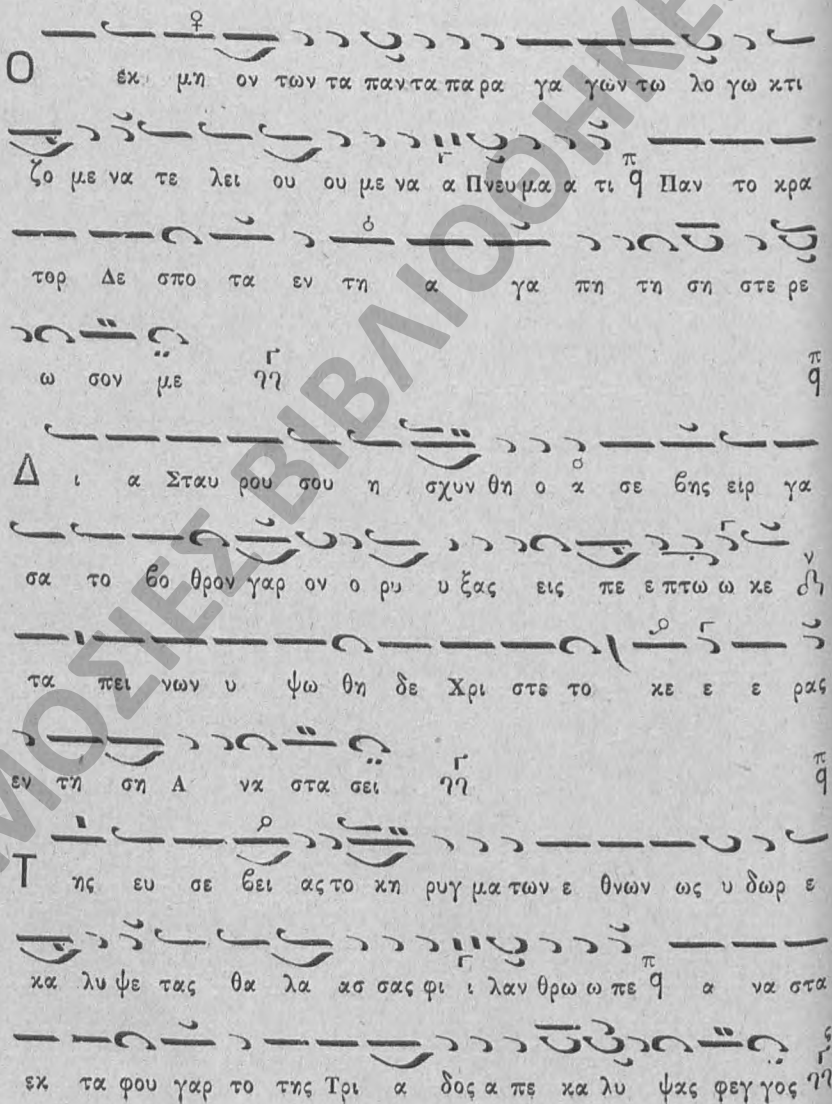 Ο εκ μη ον των τα παν τα πα ρα γα γών τω λο γω κτι
ζο με να τε λει ου ου με να α Πνευ μα α τι Παν το κρα
τορ Δε σπο τα εν τη α γα πη τη ση στε ρε
ω σον με
Δ ι α Σταυ ρου σου η σχυν θη ο α σε βης είρ γα
σα το βο θρον γαρ ον ο ρυ υ ξας εις πε ε πτω ω κε
τα πει νων υ ψω θη δε Χρι στε το κε ε ε ρας
εν τη ση Α να στα σει
Τ ης ευ σε βει ας το κη ρυγ μα των ε θνων ως υ δωρ ε
κα λυ ψε τας θα λα ασ σας φι ι λαν θρω ω πε α να στα
εκ τα φου γαρ το της Τρι α δος α πε κα λυ ψας φεγ γος
ΜΟΣΙΕΣ ΒΙΒΛΙΟΘΗΚΕ